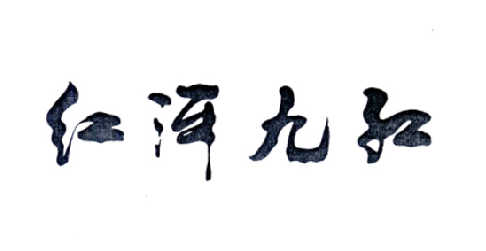 红河九红